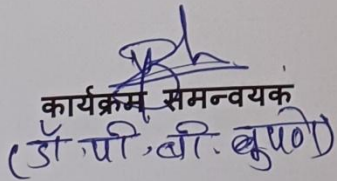 कार्यक्रम समन्वयक
(डॉ. पी. बी. कुपणे)